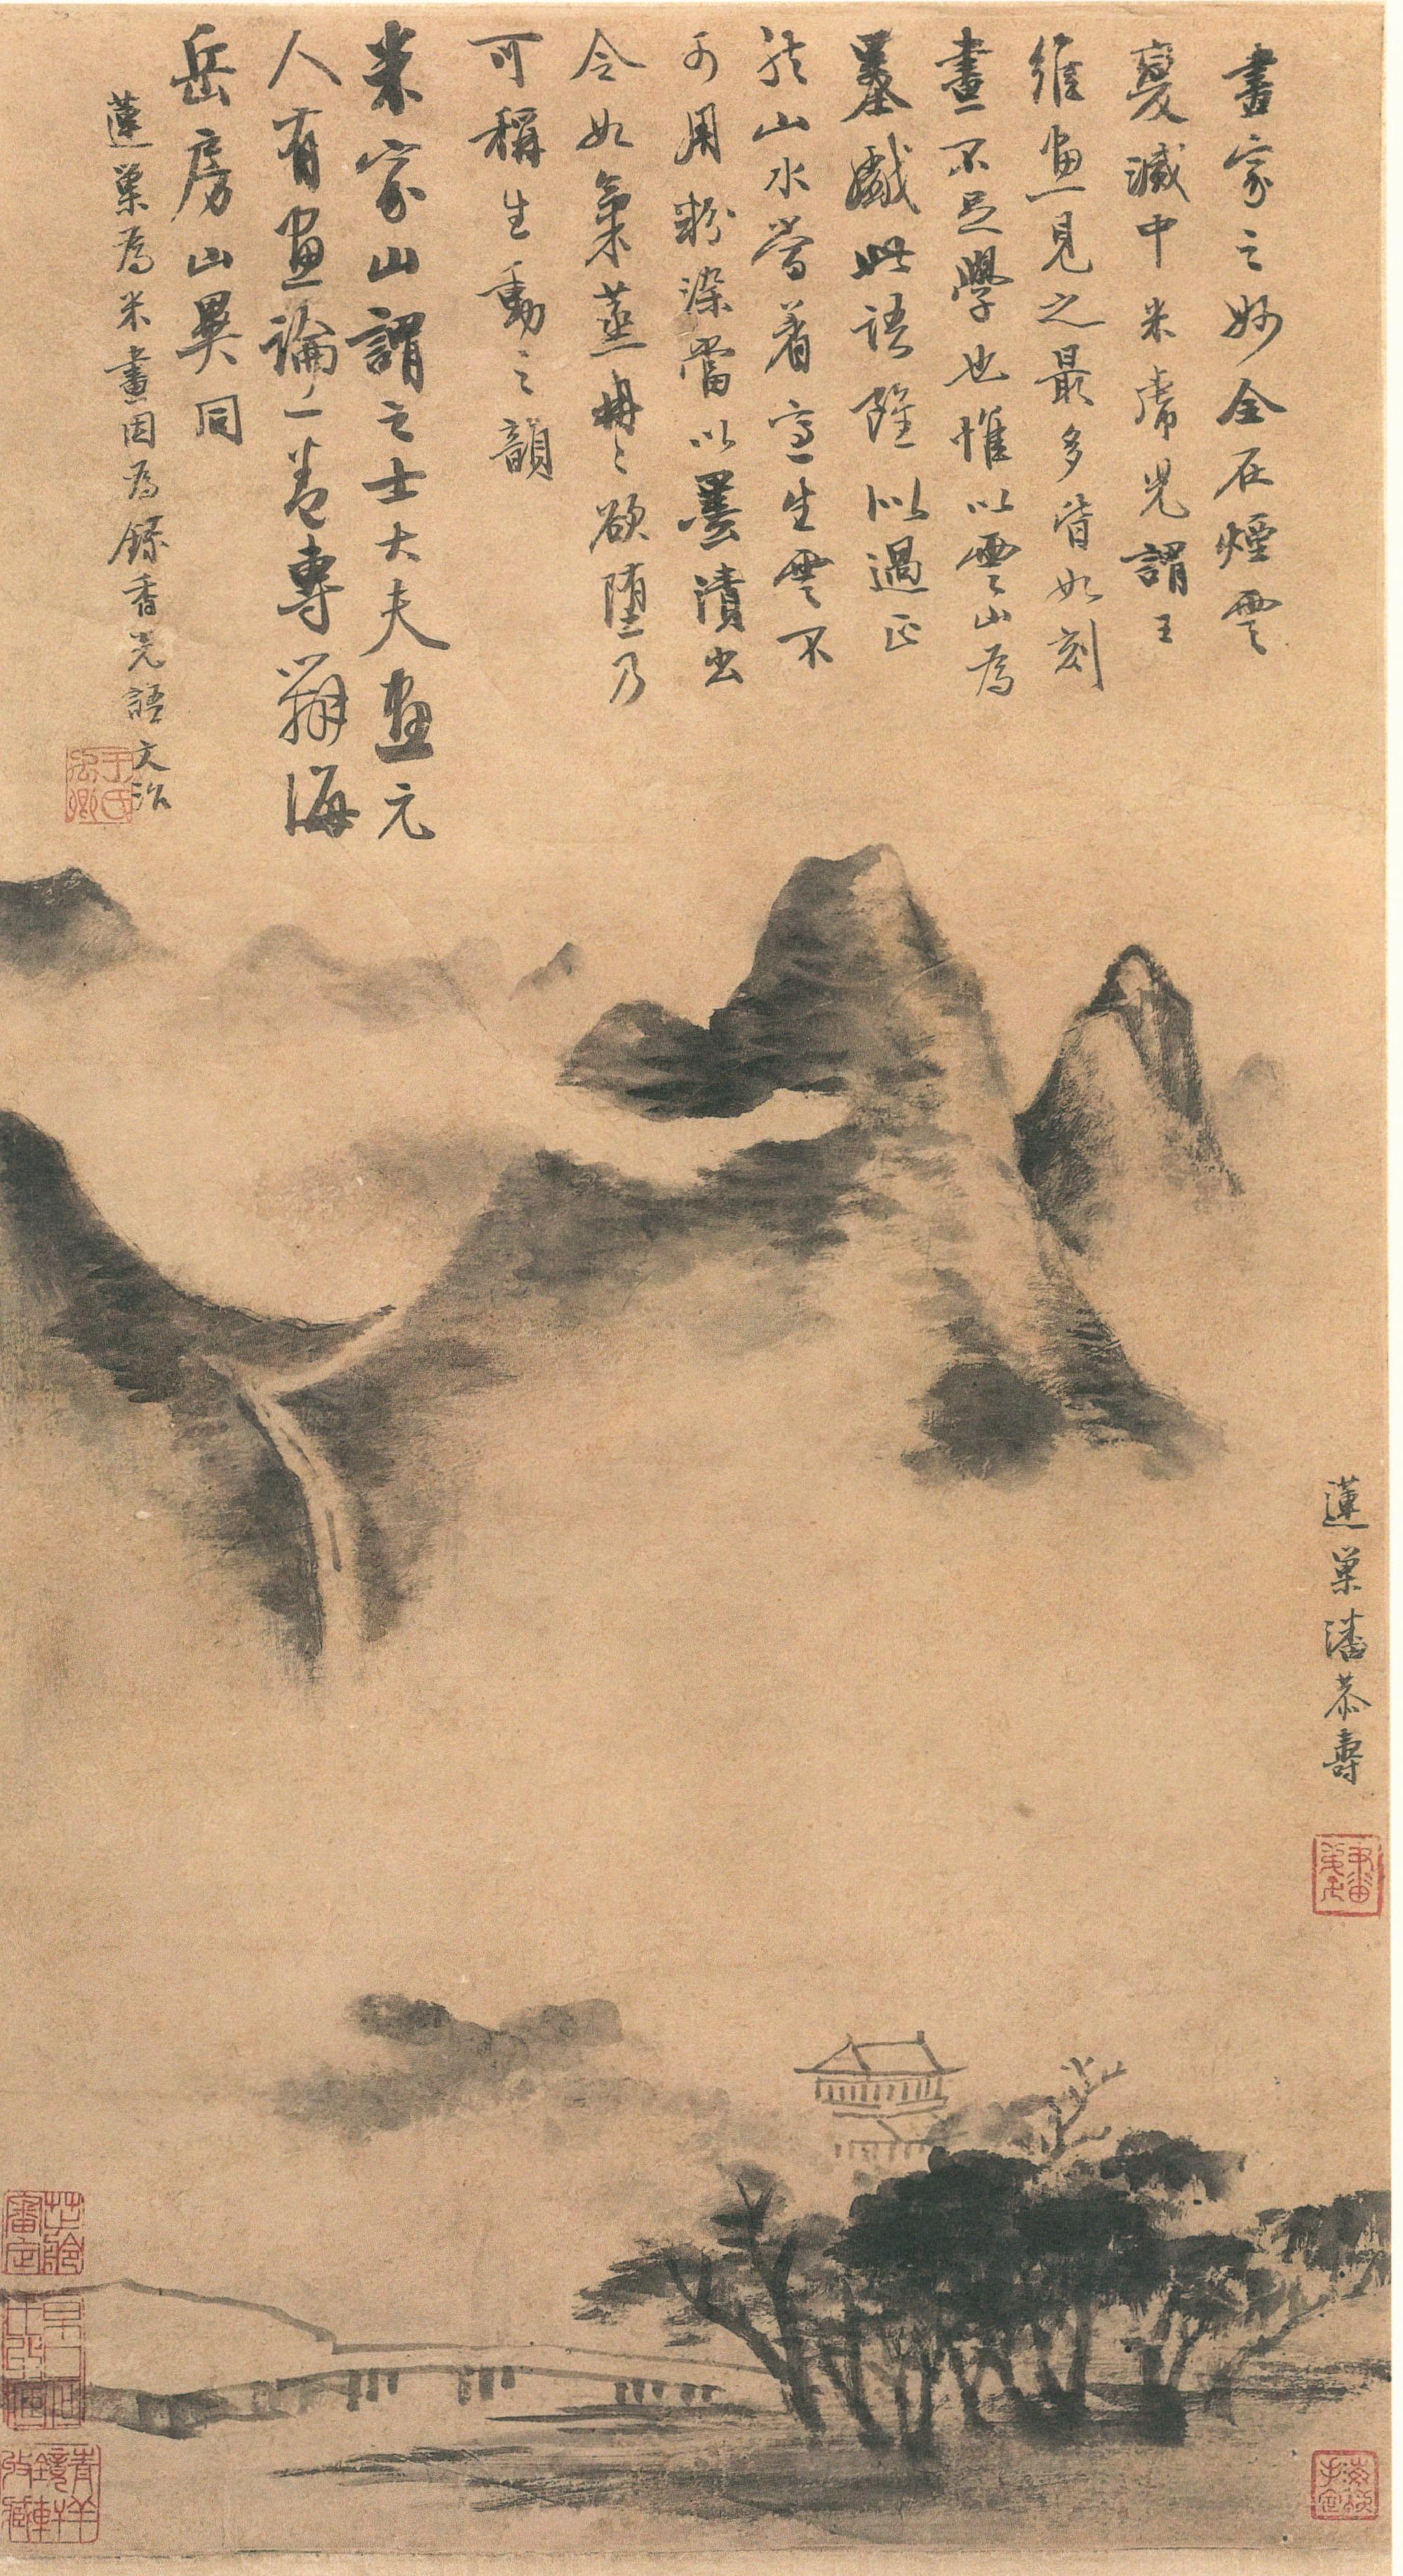 畫家之妙全在煙雲
變滅中米虎兒謂王
維畫見之最多皆如刻
畫不足學也惟以雲山為
墨戲此語雖似過正
然山水當着意生雲不
可用粉染當以墨漬出
令如氣蒸冉〻欲墮乃
可稱生動之韻
米家山謂之士大夫畫元
人有畫論一卷專辨海
岳房山異同
蓮巢為米畫因為錄香光語文治
蓮巢潘恭壽